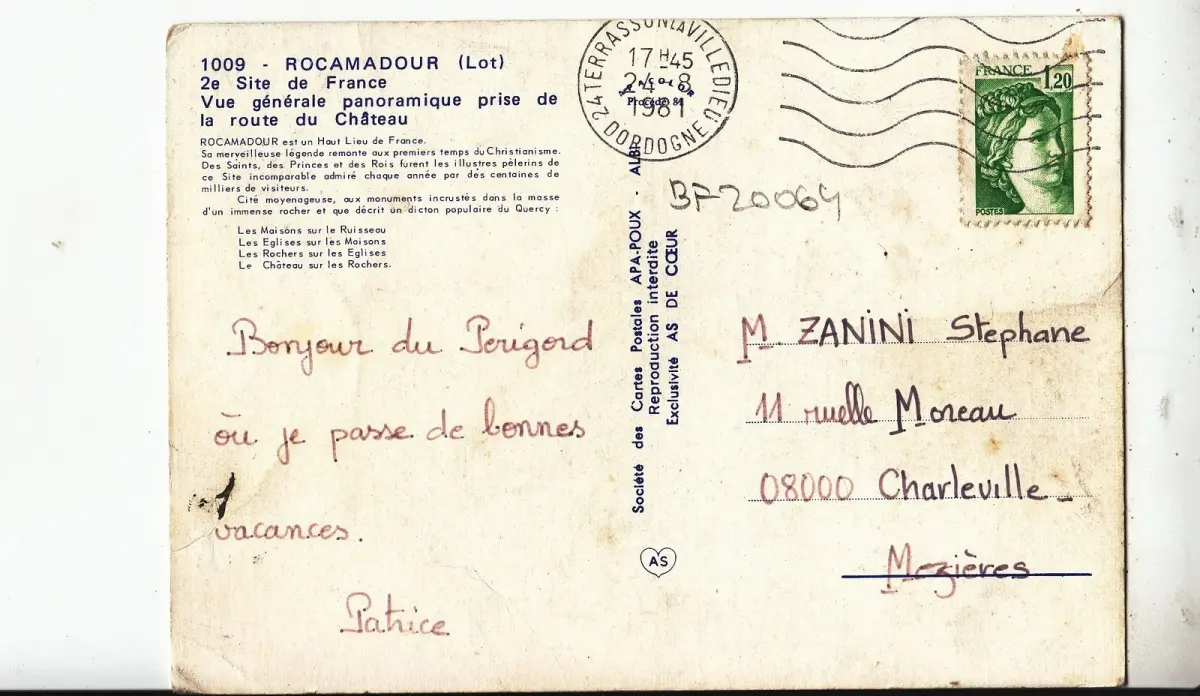 1009 - ROCAMADOUR (Lot)
2e Site de France
Vue générale panoramique prise de
la route du Château
ROCAMADOUR est un Haut Lieu de France.
Sa merveilleuse légende remonte aux premiers temps du Christianisme.
Des Saints, des Princes et des Rois furent les illustres pèlerins de
ce Site incomparable admiré chaque année par des centaines de
milliers de visiteurs.
Cité moyenageuse, aux monuments incrustés dans la masse
d'un immense rocher et que décrit un dicton populaire du Quercy :
Les Maisons sur le Ruisseau
Les Eglises sur les Maisons
Les Rochers sur les Eglises
Le Château sur les Rochers.
Bonjour du Périgord
où je passe de bonnes
vacances.
Patrice
24 TERRASSON LA VILLEDIEU
17H45
24-8
1981
DORDOGNE
Société des Cartes Postales APA-POUX - ALBI
Reproduction interdite
Exclusivité AS DE CŒUR
AS
FRANCE 1,20
POSTES
BF20064
M. ZANINI Stephane
11 ruelle Moreau
08000 Charleville -
Mezières